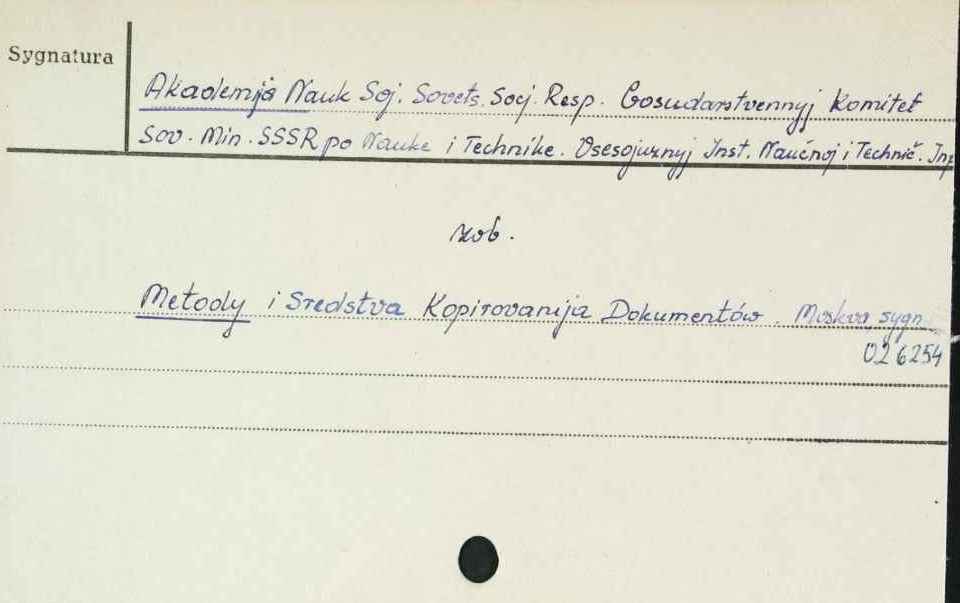 Sygnatura
Akademija Nauk Soj. Sovets. Socj. Resp. Gosudarstvennyj Komitet
Sov. Min. SSSR po Nauke i Technike. Vsesojuznyj Inst. Naučnoj i Technič. Inf
zob.
Metody i Sredstva Kopirovanija Dokumentów. Moskva sygn.
026254